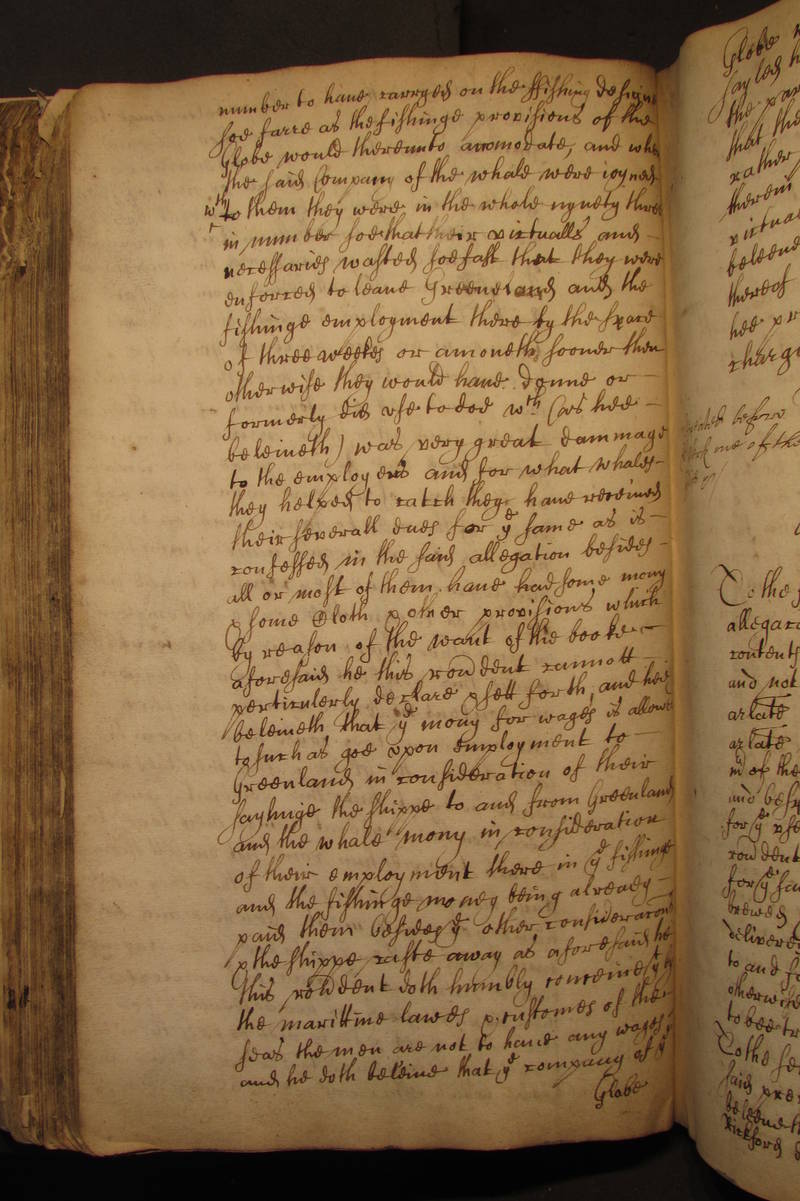 number to have carryed on the ffishing designe
soe farre as the fishinge provisions of the
Globe would thereunto acomodate, and when
the said Company of the whale were ioyned
wth to them they were in the whole nynety three
in number soe that their victualls and
necessaries wasted soe fast that they were
enforced to leave Greeneland and the
fishinge employment there by the space
of three weekes or a moneth sooner then
otherwise they would have donne or
formerly did use to doe wth (as hee
beleiveth) was very great dammage
to the employers and for what whales
they helped to catch they have received
their severall dues for ye same as is
confessed in the said allegation besides
all or most of them have had some mony
& some Cloth & other provisions which
by reason of the want of the booke
aforesaid he this rondent cannott
perticulerly declare & sett forth, and hee
beleiveth that ye mony for wages is allowed
to such as goe upon employment to
Greenland in consideration of their
saylinge the shippe to and from Greenland
and the whale mony in consideration
of their employment there in ye fishinge
and the fishinge money being already
paid them besides ye other consideracons
& the shippe caste away as aforesaid he
this rondent doth humbly conceive yt by
the marittine lawes & customes of the
seas the men are not to have any wages,
and he doth beleive that ye company of ye
Globe
Globe
sayled
the
that the
rather
therein
beleeve
thereof
hee
before
one of the
To the
allegac
contents
and not
arlate
arlate
of the
for ye use
rondent
for ye
delivered
to and
otherwise
to bee
To the
said
beleeveth